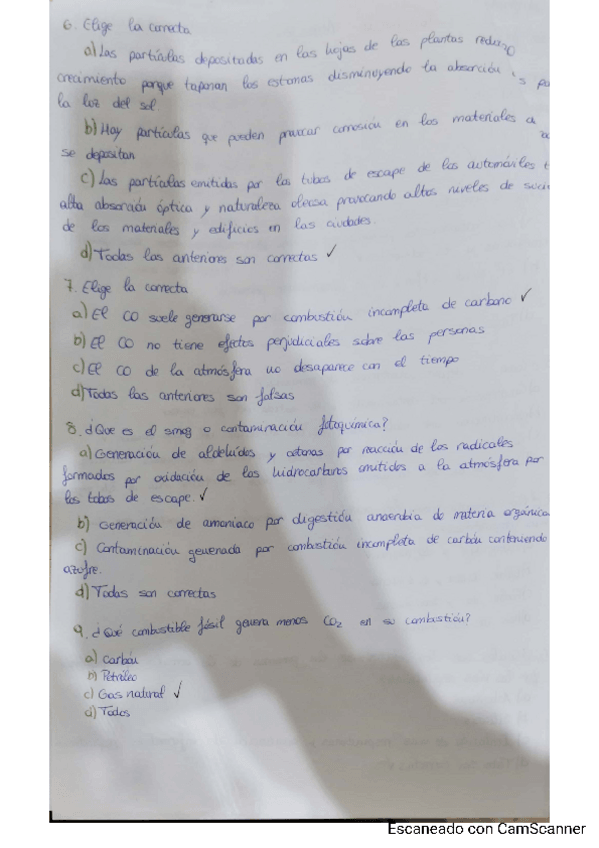 6. Elige la correcta
a) Las partículas depositadas en las hojas de las plantas
crecimiento porque taponan los estomas disminuyendo la absorción
la luz del sol
b) Hay partículas que pueden provocar corrosión en los materiales
se depositan
c) Las partículas emitidas por los tubos de escape de los automóviles
alta absorción óptica y naturaleza oleosa provocando altos niveles de
de los materiales y edificios en las ciudades.
d) Todas las anteriores son correctas ✓
7. Elige la correcta
a) El CO suele generarse por combustión incompleta de carbono ✓
b) El CO no tiene efectos perjudiciales sobre las personas
c) El CO de la atmósfera no desaparece con el tiempo
d) Todas las anteriores son falsas
8. ¿Que es el smog o contaminación fotoquímica?
a) Generación de aldeídos y cetonas por reacción de los radicales
formados por oxidación de los hidrocarburos emitidos a la atmósfera por
los tubos de escape. ✓
b) Generación de amoniaco por digestión anaerobia de materia orgánica
c) Contaminación generada por combustión incompleta de carbón conteniendo
azufre.
d) Todas son correctas
9. ¿Qué combustible fósil genera menos CO2 en su combustión?
a) Carbón
b) Petróleo
c) Gas natural ✓
d) Todos
Escaneado con CamScanner